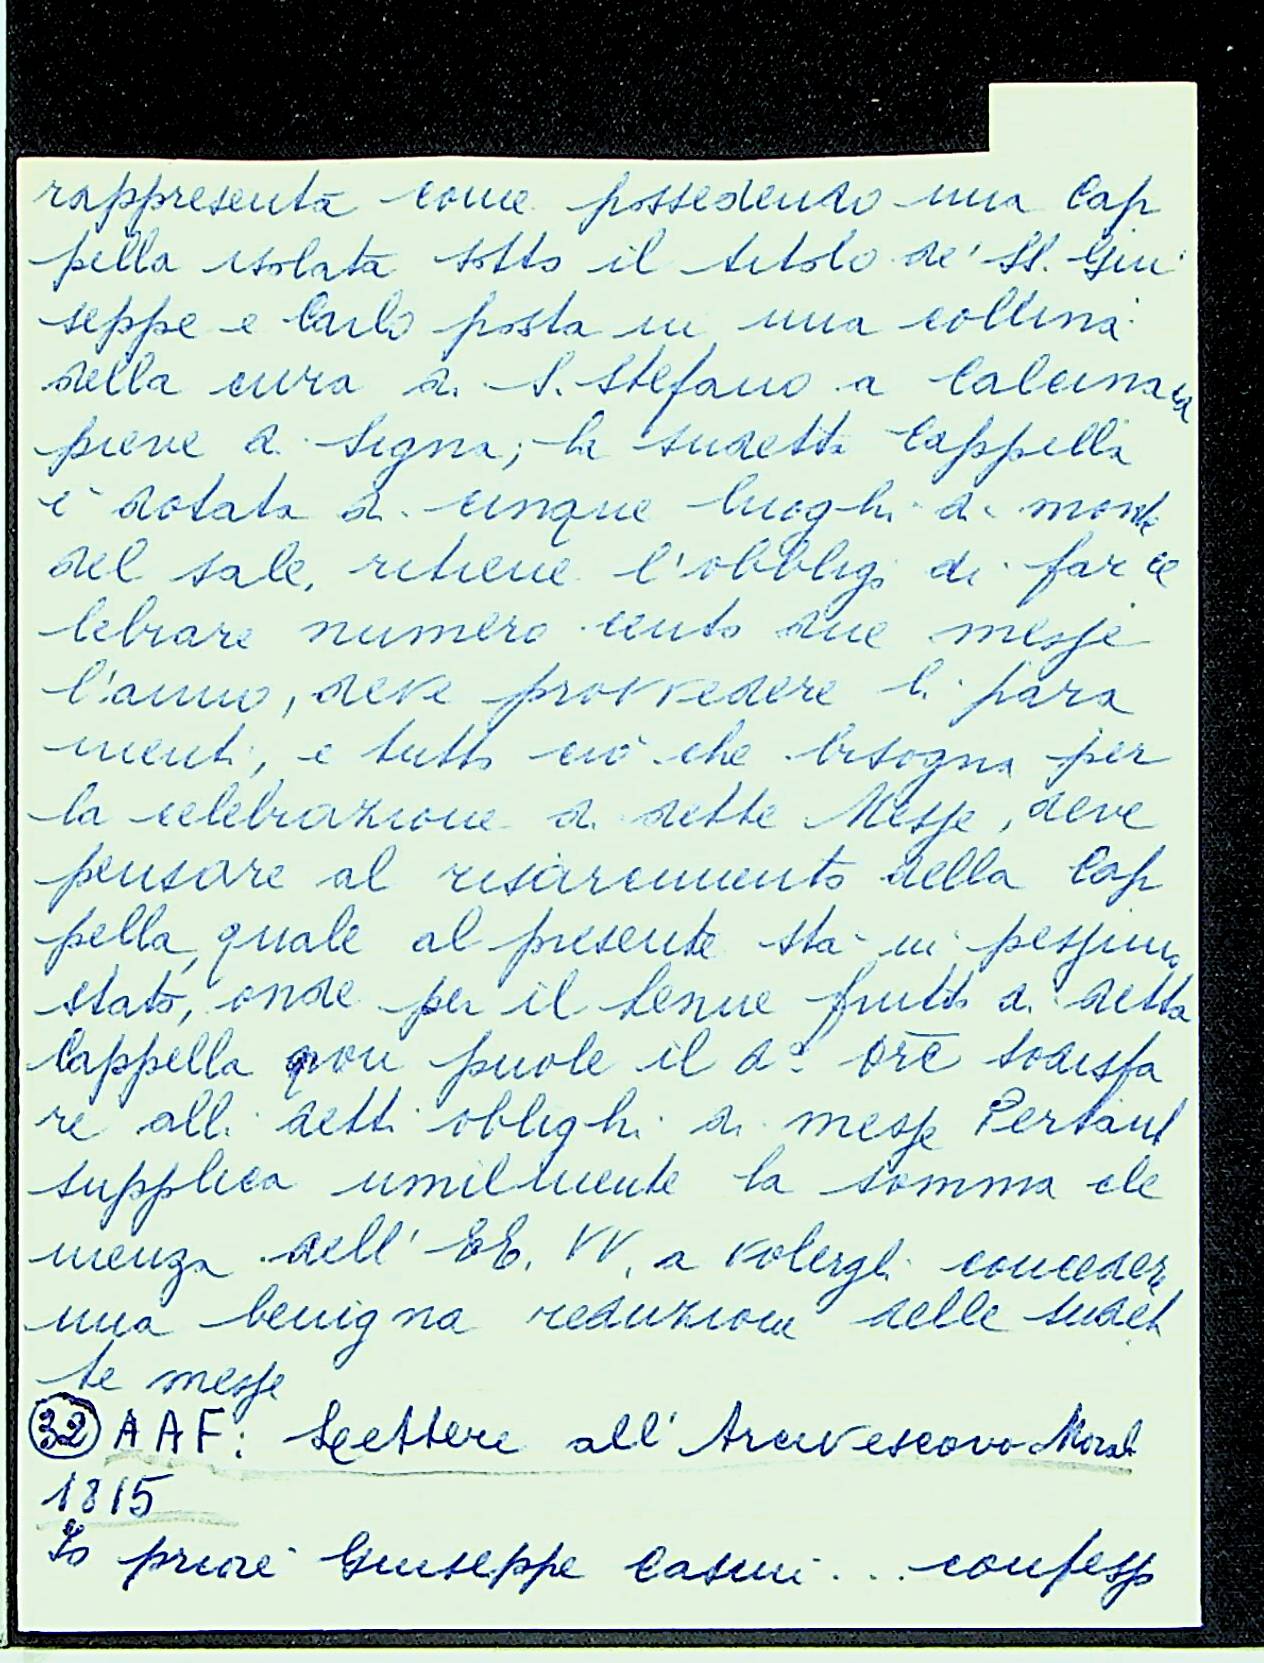 rappresenta come possedendo una Cap
pella isolata sotto il titolo de' SS. Giu
seppe e Carlo posta in una collina
della cura di S. Stefano a Calcinaia
pieve a Signa; la sudetta Cappella
è dotata di cinque luoghi di monte
del sale, ritiene l'obbligo di far ce
lebrare numero cento due messe
l'anno, deve provvedere li para
menti, e tutto ciò che bisogna per
la celebrazione di dette Messe, deve
pensare al risarcimento della Cap
pella, quale al presente sta in pessimo
stato, onde per il tenue frutto di detta
Cappella non puole il do Ore sodisfa
re alli detti oblighi di messe Pertant
supplica umilmente la somma cle
menza dell' EE. VV. a volergli concedere
una benigna reduzione delle sudet
te messe
32 AAF: Lettere all'Arcivescovo Morali
1815
Io priore Giuseppe Casini... confesso